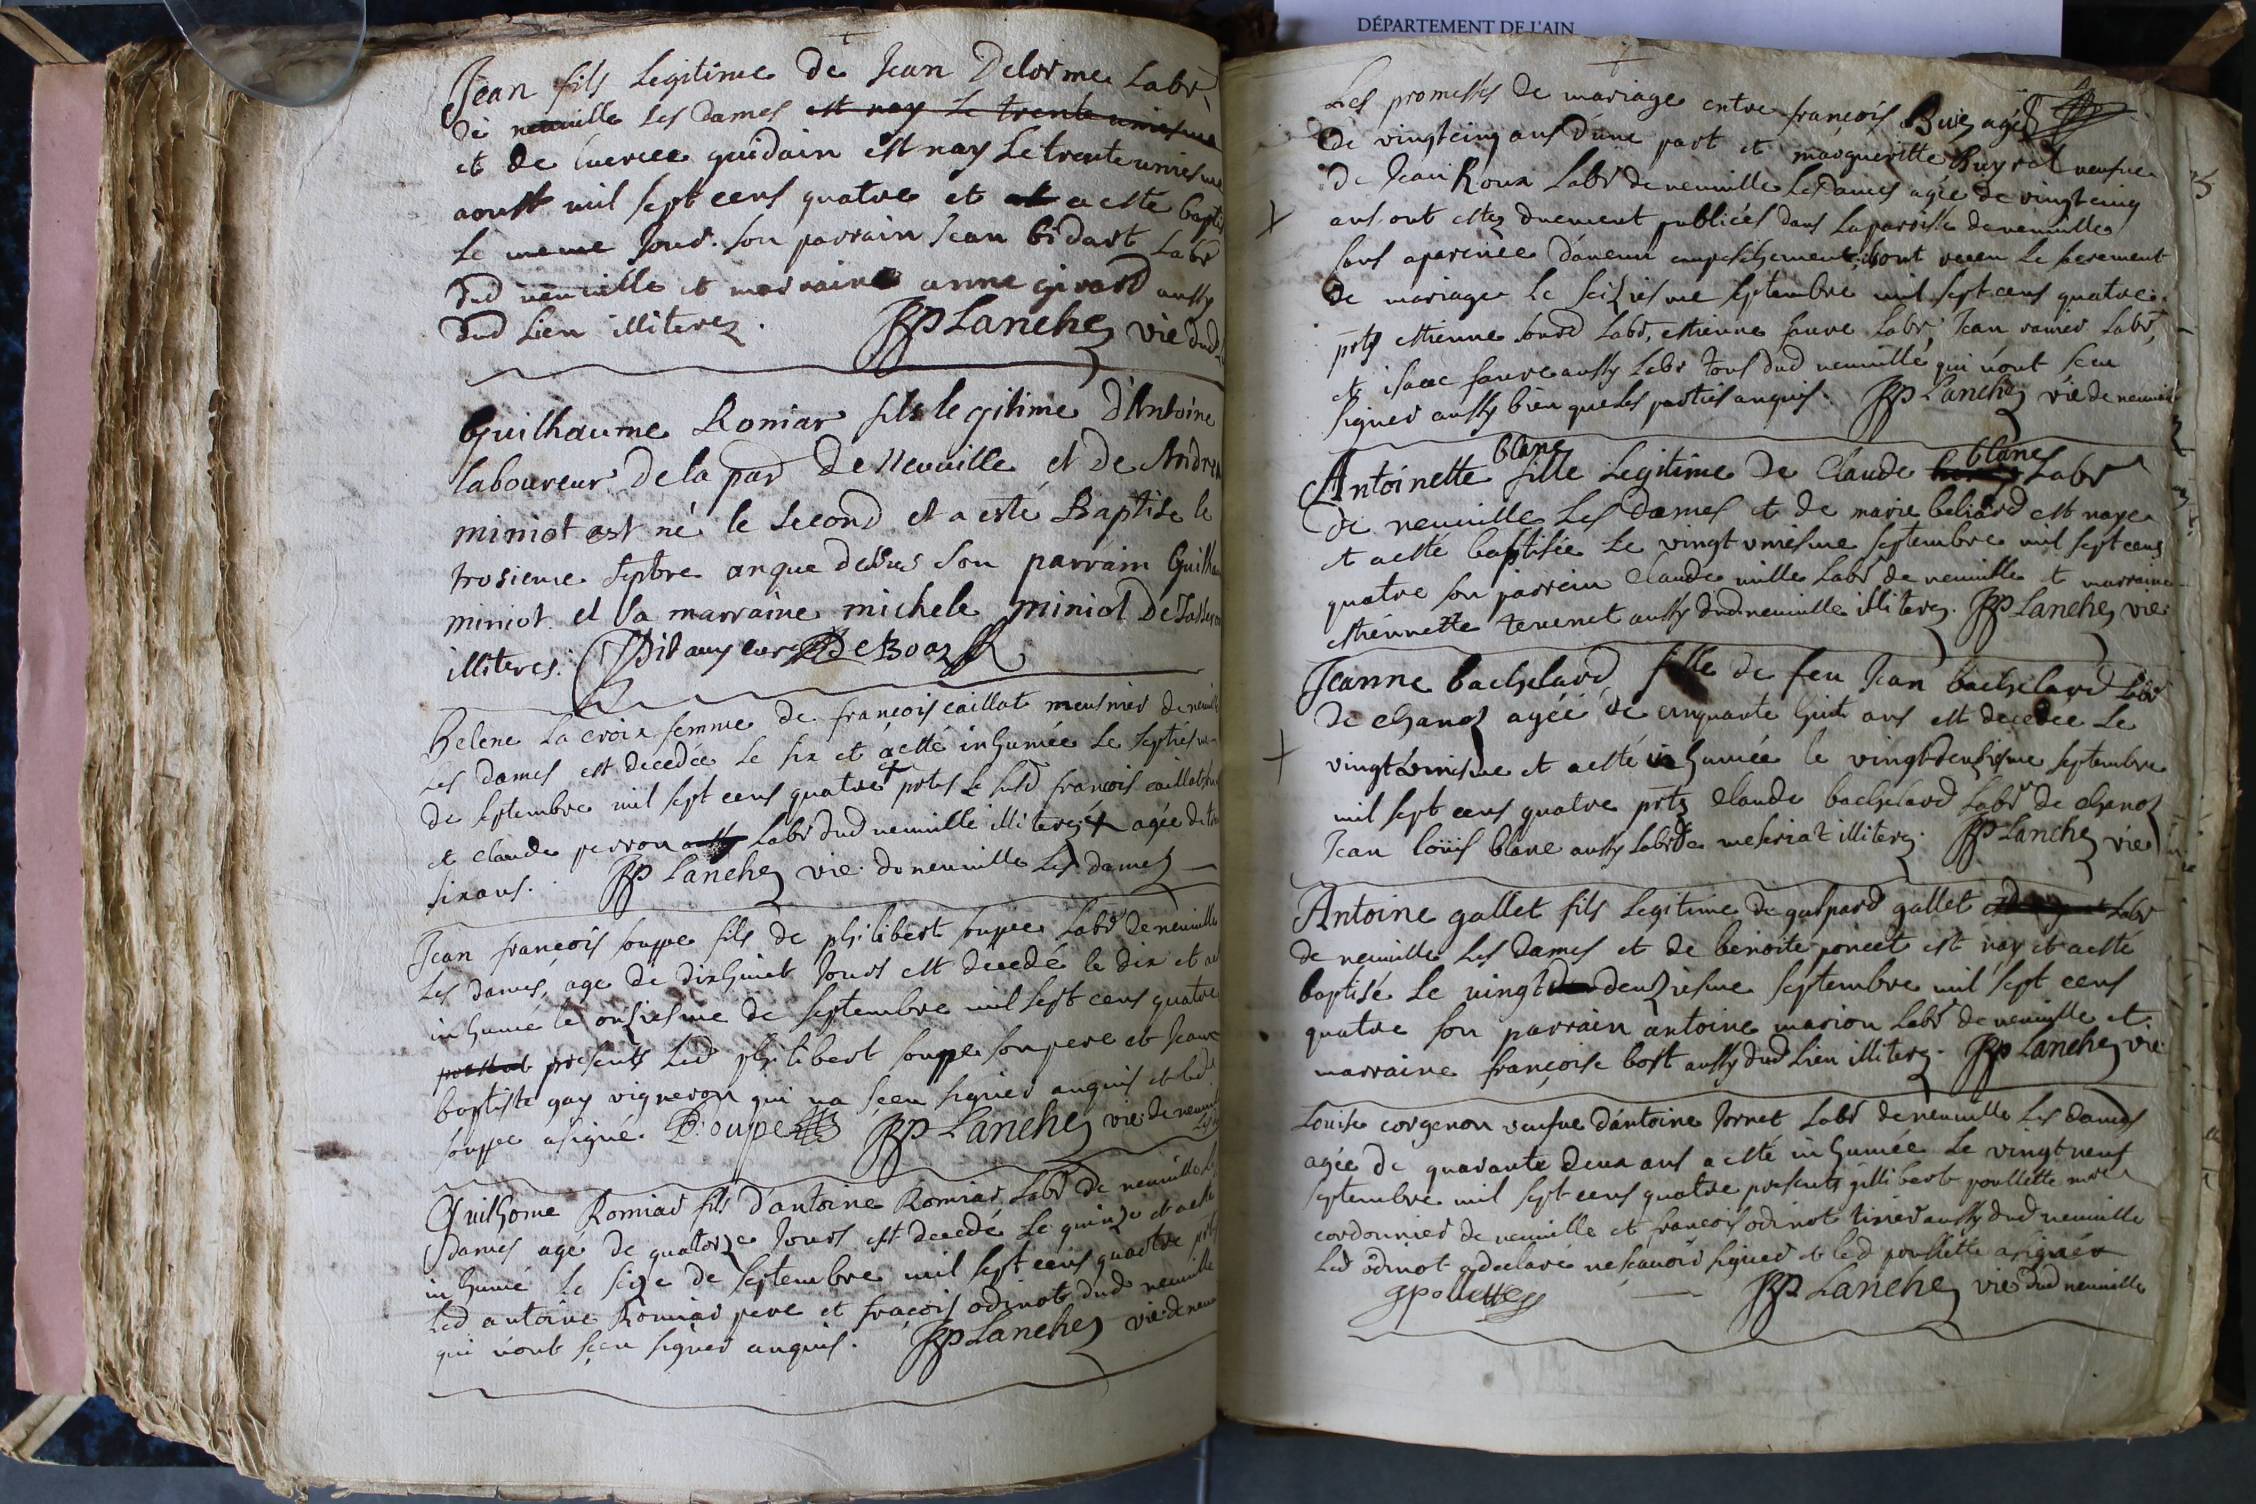 DÉPARTEMENT DE L'AIN
Jean fils Legitime de Jean Delorme Labr
de neuville Les dames est nay le trente uniesme
et de guidain est nay Le trente uniesme
aoust mil sept cens quatre et a esté bapti
le meme Jour. son parrain Jean bidart Labr
dud neuville et marraine anne girard aussy
dud Lieu illiterez. JP Lanchez vic dud
Guilhaume Romiar fils legitime d'Antoine
laboureur de la par de Neuville et de Andrea
miniot est né le second et a esté Baptise le
trosieme septbre an que dessus son parrain Guilhau
miniot et sa marraine michele miniot De
illiteres.
Helene La croix femme de françois caillat meusnier de neuville
Les dames est decedée le six et a esté inhumée Le septiesme
de septembre mil sept cens quatre pnts le susd françois caillat
et claude perron Labr dud neuville illiterez agée de
six ans. JP Lanchez vic. de neuville Les dames
Jean françois souppe fils de philibert souppe Labr de neuville
Les dames, age de dixhuict Jours est decedé le dix et a
inhumé le onziesme de septembre mil sept cens quatre
presents Led philibert souppe son pere et Jean
baptiste gay vigneron qui na sceu signer enquis et led
souppe a signé. P. soupe JP Lanchez vic. de neuvil
Guilhome Romiar fils d'antoine Romiar Labr de neuville Les
dames agé de quatorze Jours est decedé Le quinze et a esté
inhumé Le seize de septembre mil sept cens quatre pnts
Led antoine Romiar pere et fraçois odinot dud neuville
qui n'ont sceu signer enquis. JP Lanchez vic. de neuv
Les promesses de mariage entre françois Buis agé
de vingtcinq ans d'une part et marguerite Buyret veufve
de Jean Roux Labr de neuville Les dames agée de vingtcinq
ans ont estez duement publiées dans La paroisse de neuville
sans aparence d'aucun empeschement, ont receu Le sacrement
de mariage Le seiziesme septembre mil sept cens quatre.
pnts estienne sourd Labr, estienne favre Labr, Jean ranier Labr,
et isaac favre aussy Labr tous dud neuville qui n'ont sceu
signer aussy bien que les parties enquis. JP Lanchez vic de neuville
blanc blanc
Antoinette fille Legitime de Claude Labr
de neuville Les dames et de marie beliard est naye
et a esté baptisée Le vingt uniesme septembre mil sept cens
quatre son parrein Claude mille Labr de neuville et marraine
estiennette tevenet aussy dud neuville illiterez. JP Lanchez vic.
Jeanne bachelard fille de feu Jean bachelard Labr
de chanoz agée de cinquante huit ans est decedée Le
vingt uniesme et a esté inhumée le vingtdeuziesme septembre
mil sept cens quatre pnts Claude bachelard Labr de chanoz
Jean Loüis blanc aussy Labr de meseriat illiterez. JP Lanchez vic
Antoine gallet fils Legitime de gaspard gallet Labr
de neuville Les dames et de benoite poncet est nay et a esté
baptisé Le vingt deuziesme septembre mil sept cens
quatre son parrain antoine marion Labr de neuville et
marraine françoise bost aussy dud Lieu illiterez. JP Lanchez vic
Louise corgenon veufve d'antoine Jornet Labr de neuville Les dames
agée de quarante deux ans a esté inhumée Le vingt neuf
septembre mil sept cens quatre presents gilibert poullette mre
cordonnier de neuville et françois odinot tixier aussy dud neuville
Led odinot a declaré ne sçavoir signer et led poullette a signé
gpollette JP Lanchez vic dud neuville